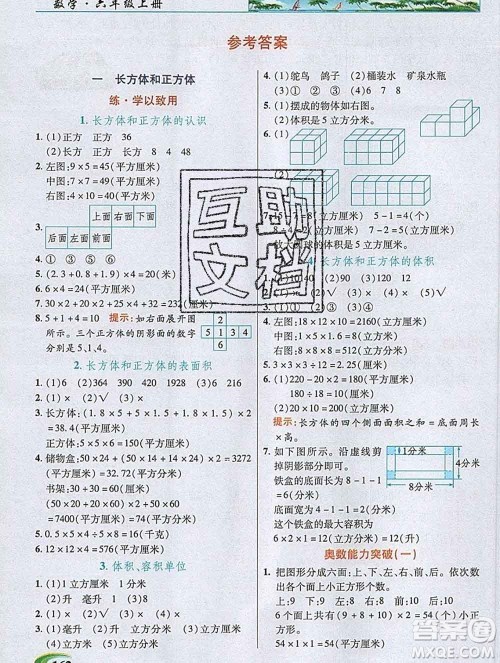 数学·六年级上册
参考答案
一 长方体和正方体
练·学以致用
1.长方体和正方体的认识
1.(1)正方 正方 36
(2)长方 正方 长方 8 4 48
2.左图:9×5=45(平方厘米)
中图:7×7=49(平方厘米)
右图:4×10=40(平方厘米)
3.
上面 右面 下面
后面 左面 前面
4.① ③ ⑤ ⑥
5.(2.3+0.8+1.9)×4=20(米)
6.6×4=24(厘米)
7.30×2+20×2+25×4+32=232(厘米)
8.5+1+4=10 提示:如右面展开图
所示。三个正方体的阴影面的数字
分别是5、1、4。
5 1 3 4
2.长方体和正方体的表面积
1.(1)6 (2)364 420 216 1920 1538
2.(1)× (2)× (3)√ (4)×
3.长方体:(1.8×5+1.5×5+1.8×1.5)×2
=38.4(平方厘米)
正方体:5×5×6=150(平方厘米)
4.储物盒:50×24+(50×14+24×14)×2
=3272(平方厘米)=32.72(平方分米)
书架:30×24+(30×50+24×50)×2+
(50×20+24×20)×2-24×50
=7400(平方厘米)=74(平方分米)
5.0.5×5×4÷5÷1.5×12=16(千克)
6.12×12×4=576(平方厘米)
3.体积、容积单位
1.(1)1立方厘米 1分米
(2)升 升 1毫升
2.(1)毫升 升 (2)立方厘米 立方米
(3)立方分米 立方厘米
3.(1)× (2)√ (3)×
4.(1)鸵鸟 鸽子 (2)桶装水 矿泉水瓶
(3)①③② (4)6 7 8
5.(1)摆成的物体如右图。
(2)体积是5立方分米。
6.(1)
(2)
互助
文档
5-1=4(个)
4.长方体和正方体的体积
(3)90 120
(4)× (5)×
3.左图:18×12×10=2160(立方厘米)
5.3×3×3×3=81(立方厘米)
6.(1)220-20×10=20(平方厘米)
(2)20×10=200(立方厘米)
提示:长方体的四个侧面面积之和=底面周长
×高。
7.如下图所示,沿虚线剪
掉阴影部分即可。
铁盒的底面长为
8-1-1=6(分米)
底面宽为4-1-1=2(分米)
这个铁盒的最大容积为
6×2×1=12(立方分米)
4分米
8分米
奥数能力突破(一)
1.把图形分成六面:上、下、左、右、前、后,依次数
出各个面上小正方形个数。
上:9 下:9 左:8 右:8 前:10 后:10
9+9+8+8+10+10=54(个)
54×1=54(平方厘米)